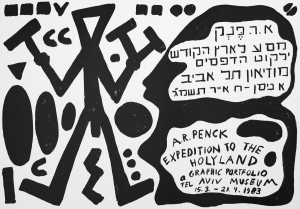 א.ר. פנק
מסע לארץ הקודש
ילקוט הדפסים
מוזיאון תל אביב
א ניסן - ח אייר תשמ"ג
A.R. PENCK
EXPEDITION TO THE
HOLYLAND
a GRAPHIC PORTFOLIO
TEL AVIV MUSEUM
15.3. - 21.4. 1983